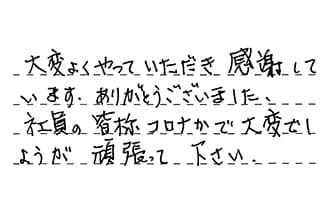 大変よくやっていただき感謝して
います。ありがとうございました。
社員の皆称コロナかで大変でし
ょうが頑張って下さい。